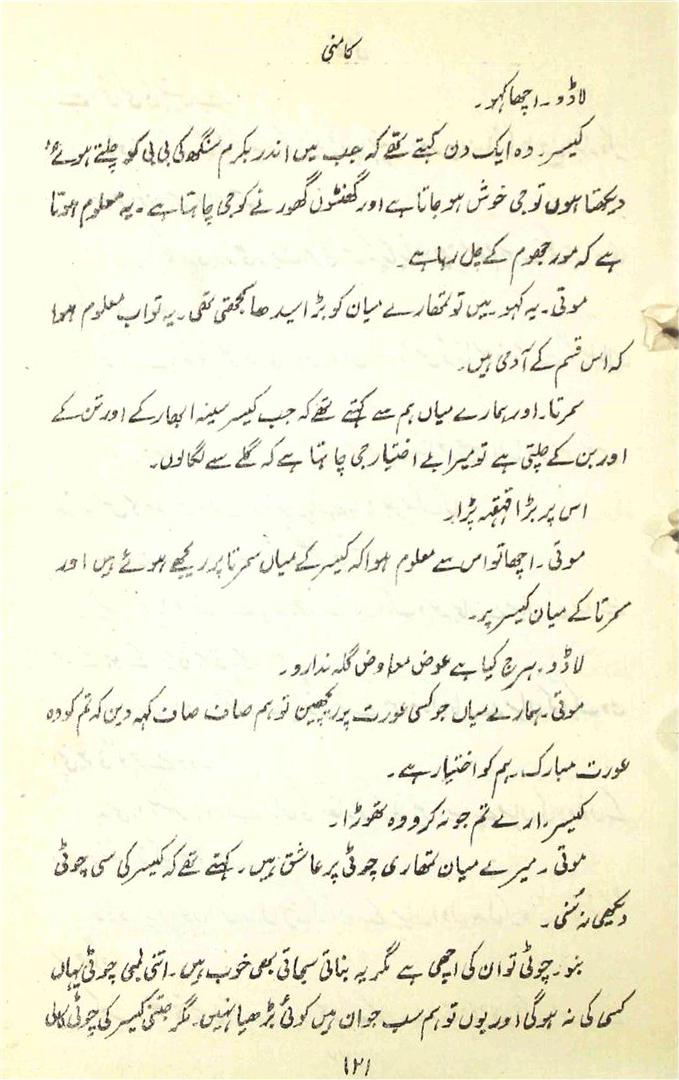 کامنی
لاڈو۔ اچھا کہو۔
کیسر۔ وہ ایک دن کہتے تھے کہ جب میں اندر بکرم سنگھ کی بی بی کو چلتے ہوئے
دیکھتا ہوں تو جی خوش ہو جاتا ہے اور گھنٹوں گھورنے کو جی چاہتا ہے۔ یہ معلوم ہوتا
ہے کہ مور جھوم کے چل رہا ہے۔
موتی۔ یہ کہو۔ میں تو تمھارے میان کو بڑا سیدھا سمجھتی تھی۔ یہ تو اب معلوم ہوا
کہ اس قسم کے آدمی ہیں۔
سمرتا۔ اور ہمارے میاں ہم سے کہتے تھے کہ جب کیسر سینہ ابھار کے اور تن کے
اور بن کے چلتی ہے تو میرا بے اختیار جی چاہتا ہے کہ گلے سے لگا لوں۔
اس پر بڑا قہقہہ پڑا۔
موتی۔ اچھا تو اس سے معلوم ہوا کہ کیسر کے میاں سمرتا پر ریجھے ہوئے ہیں اور
سمرتا کے میان کیسر پر۔
لاڈو۔ ہرج کیا ہے عوض معاوض گلہ ندارو۔
موتی۔ ہمارے میاں جو کسی عورت پر ریجھین تو ہم صاف صاف کہہ دین کہ تم کو وہ
عورت مبارک۔ ہم کو اختیار ہے۔
کیسر۔ ارے تم جو نہ کرو وہ تھوڑا۔
موتی۔ میرے میان تمھاری چوٹی پر عاشق ہیں۔ کہتے تھے کہ کیسر کی سی چوٹی
دیکھی نہ سُنی۔
بنو۔ چوٹی تو ان کی اچھی ہے مگر یہ بناتی سجاتی بھی خوب ہیں۔ اتنی لمبی چوٹی یہاں
کسی کی نہ ہوگی اور یوں تو ہم سب جوان ہیں کوئی بڑھیا نہیں۔ مگر جتنی کیسر کی چوٹی کالی
۱۲۱